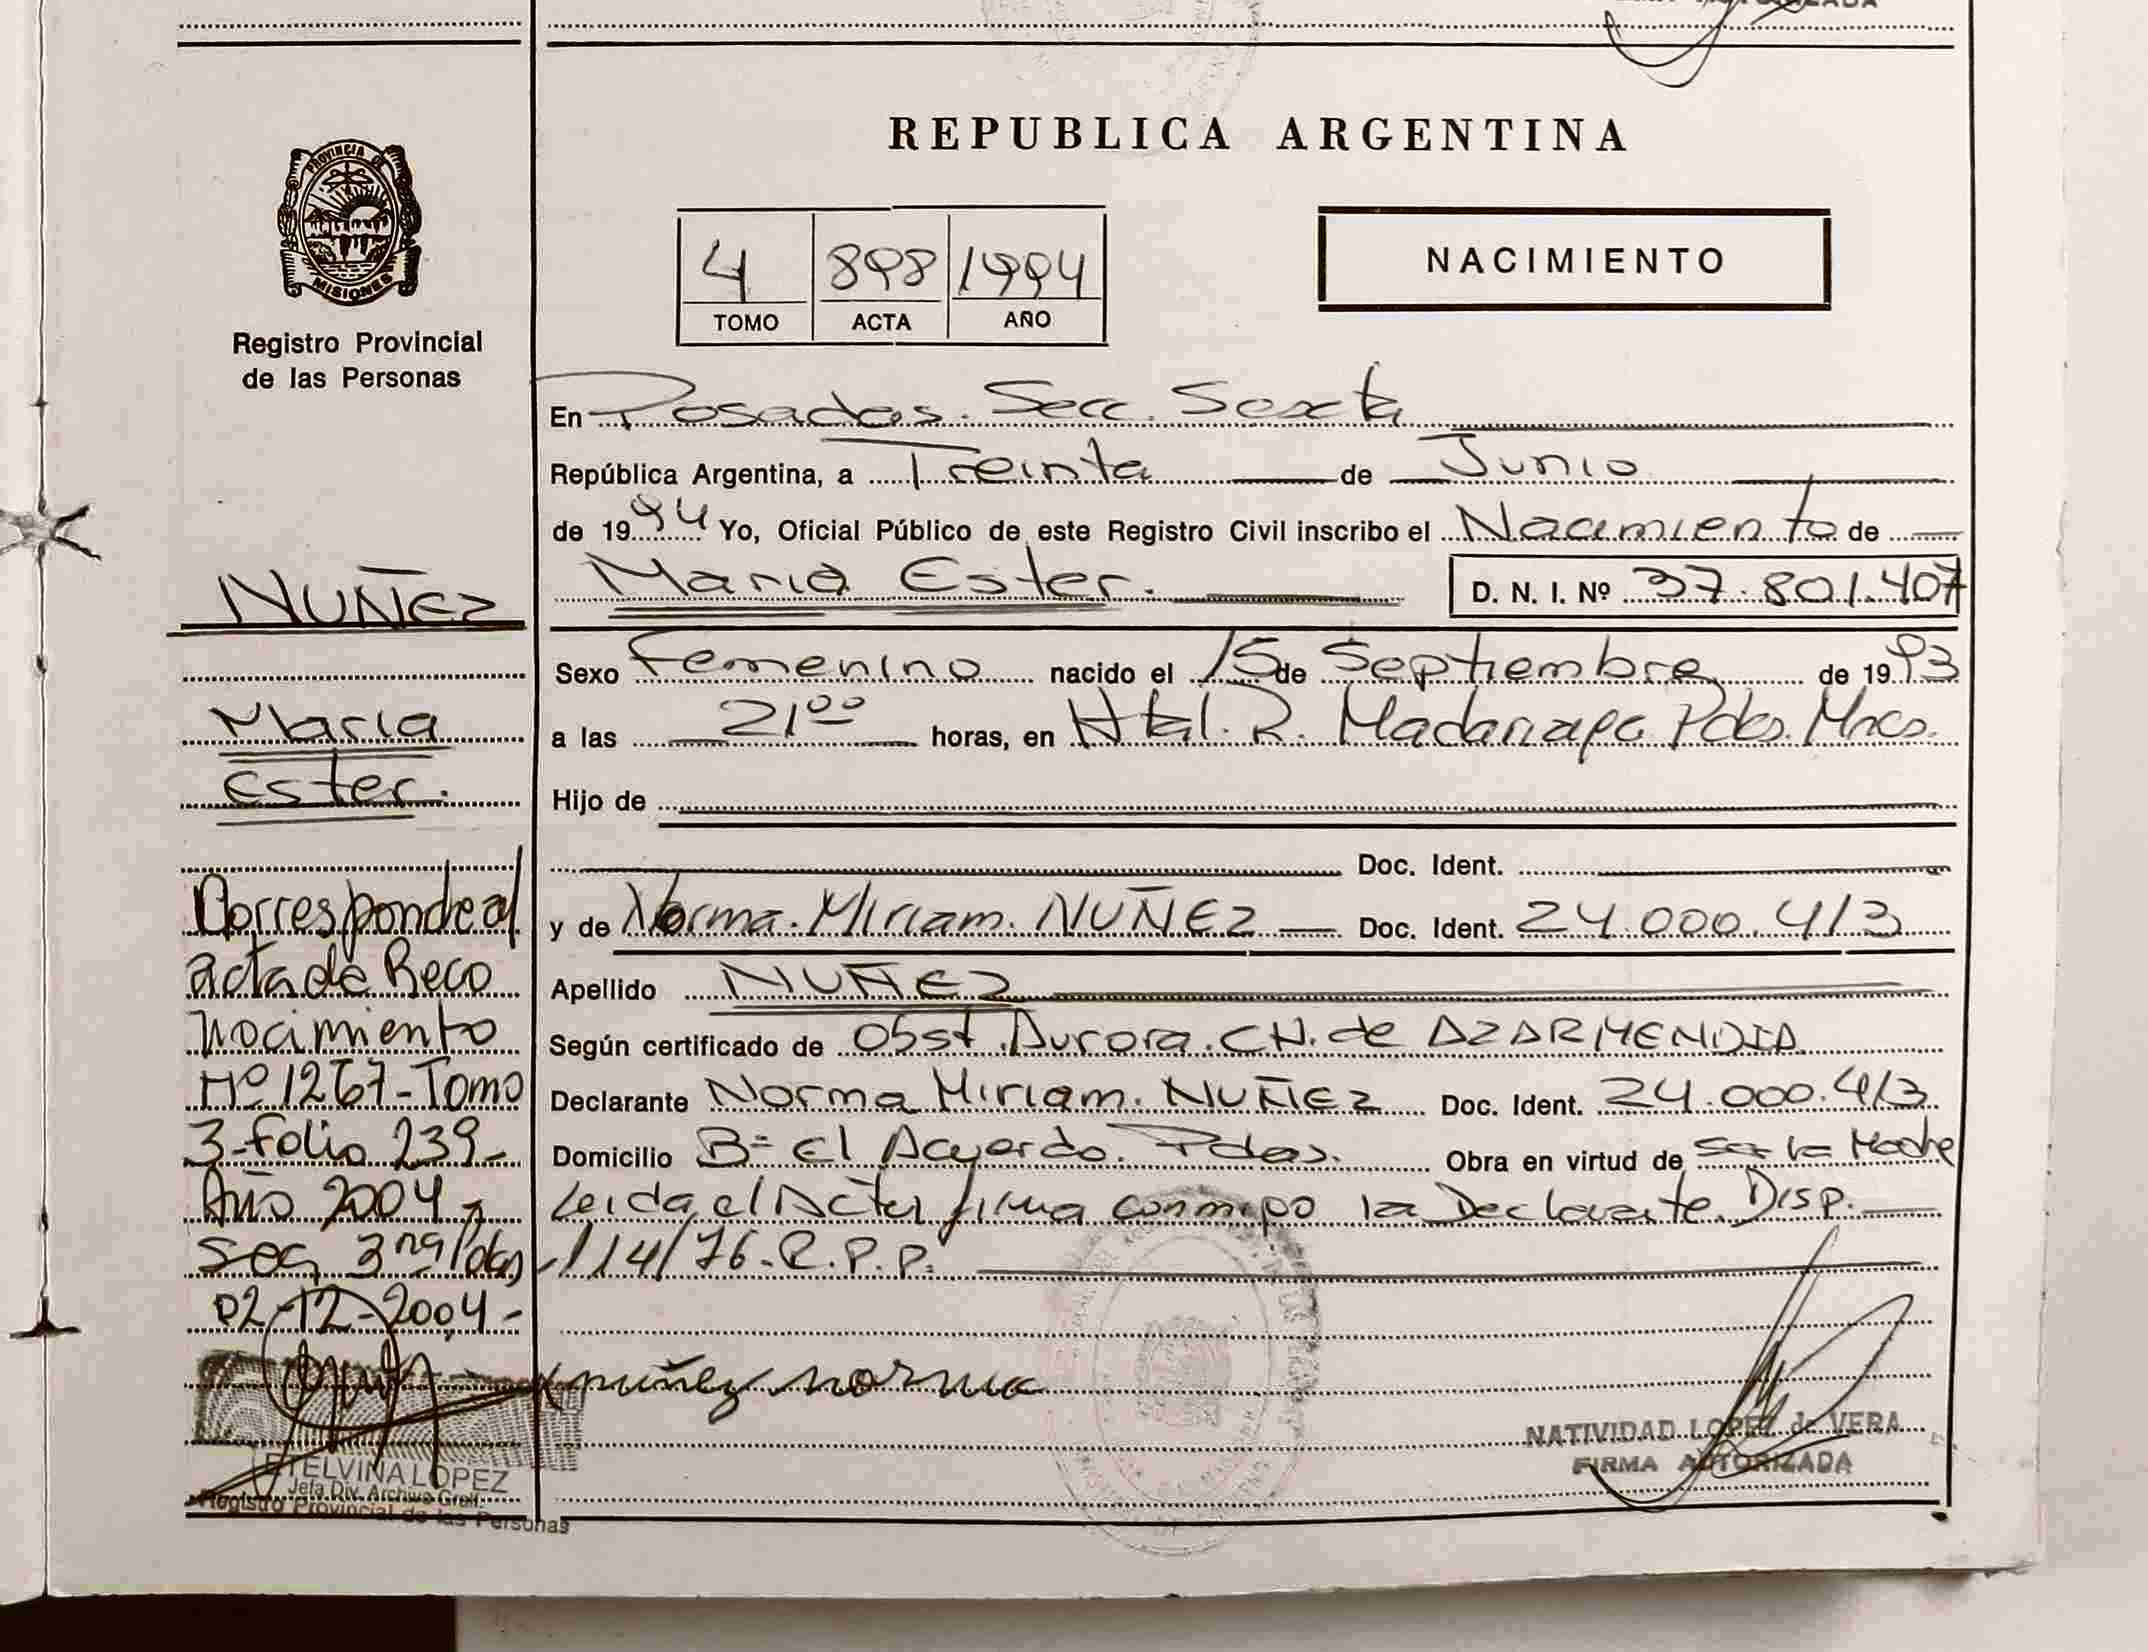 REPUBLICA ARGENTINA
PROVINCIA DE MISIONES
Registro Provincial
de las Personas
4 898 1994
TOMO ACTA AÑO
NACIMIENTO
En Posadas. Secc. Sexta
República Argentina, a Treinta de Junio
de 1994 Yo, Oficial Público de este Registro Civil inscribo el Nacimiento de
Maria Ester. D. N. I. Nº 37.801.407
Sexo Femenino nacido el 15 de Septiembre de 1993
a las 21⁰⁰ horas, en Htal. R. Madariaga Pdas. Mnes.
Hijo de
Doc. Ident.
y de Norma. Miriam. NUÑEZ Doc. Ident. 24.000.413
Apellido NUÑEZ
Según certificado de Obst. Aurora. CH. de AZARMENDIA
Declarante Norma Miriam. NUÑEZ Doc. Ident. 24.000.413
Domicilio Bº El Acuerdo. Pdas. Obra en virtud de ser la Madre
Leida el Acta firma conmigo la Declarante. Disp.
114/76-R.P.P.
nuñez norma
NATIVIDAD LOPEZ de VERA
FIRMA AUTORIZADA
NUÑEZ
Maria
Ester.
Corresponde al
acta de Reco
nocimiento
Nº 1267-Tomo
3-folio 239-
Año 2004-
Sec. 3ra Pdas
02-12-2004-
ETELVINA LOPEZ
Jefa Div. Archivo Gral.
Registro Provincial de las Personas